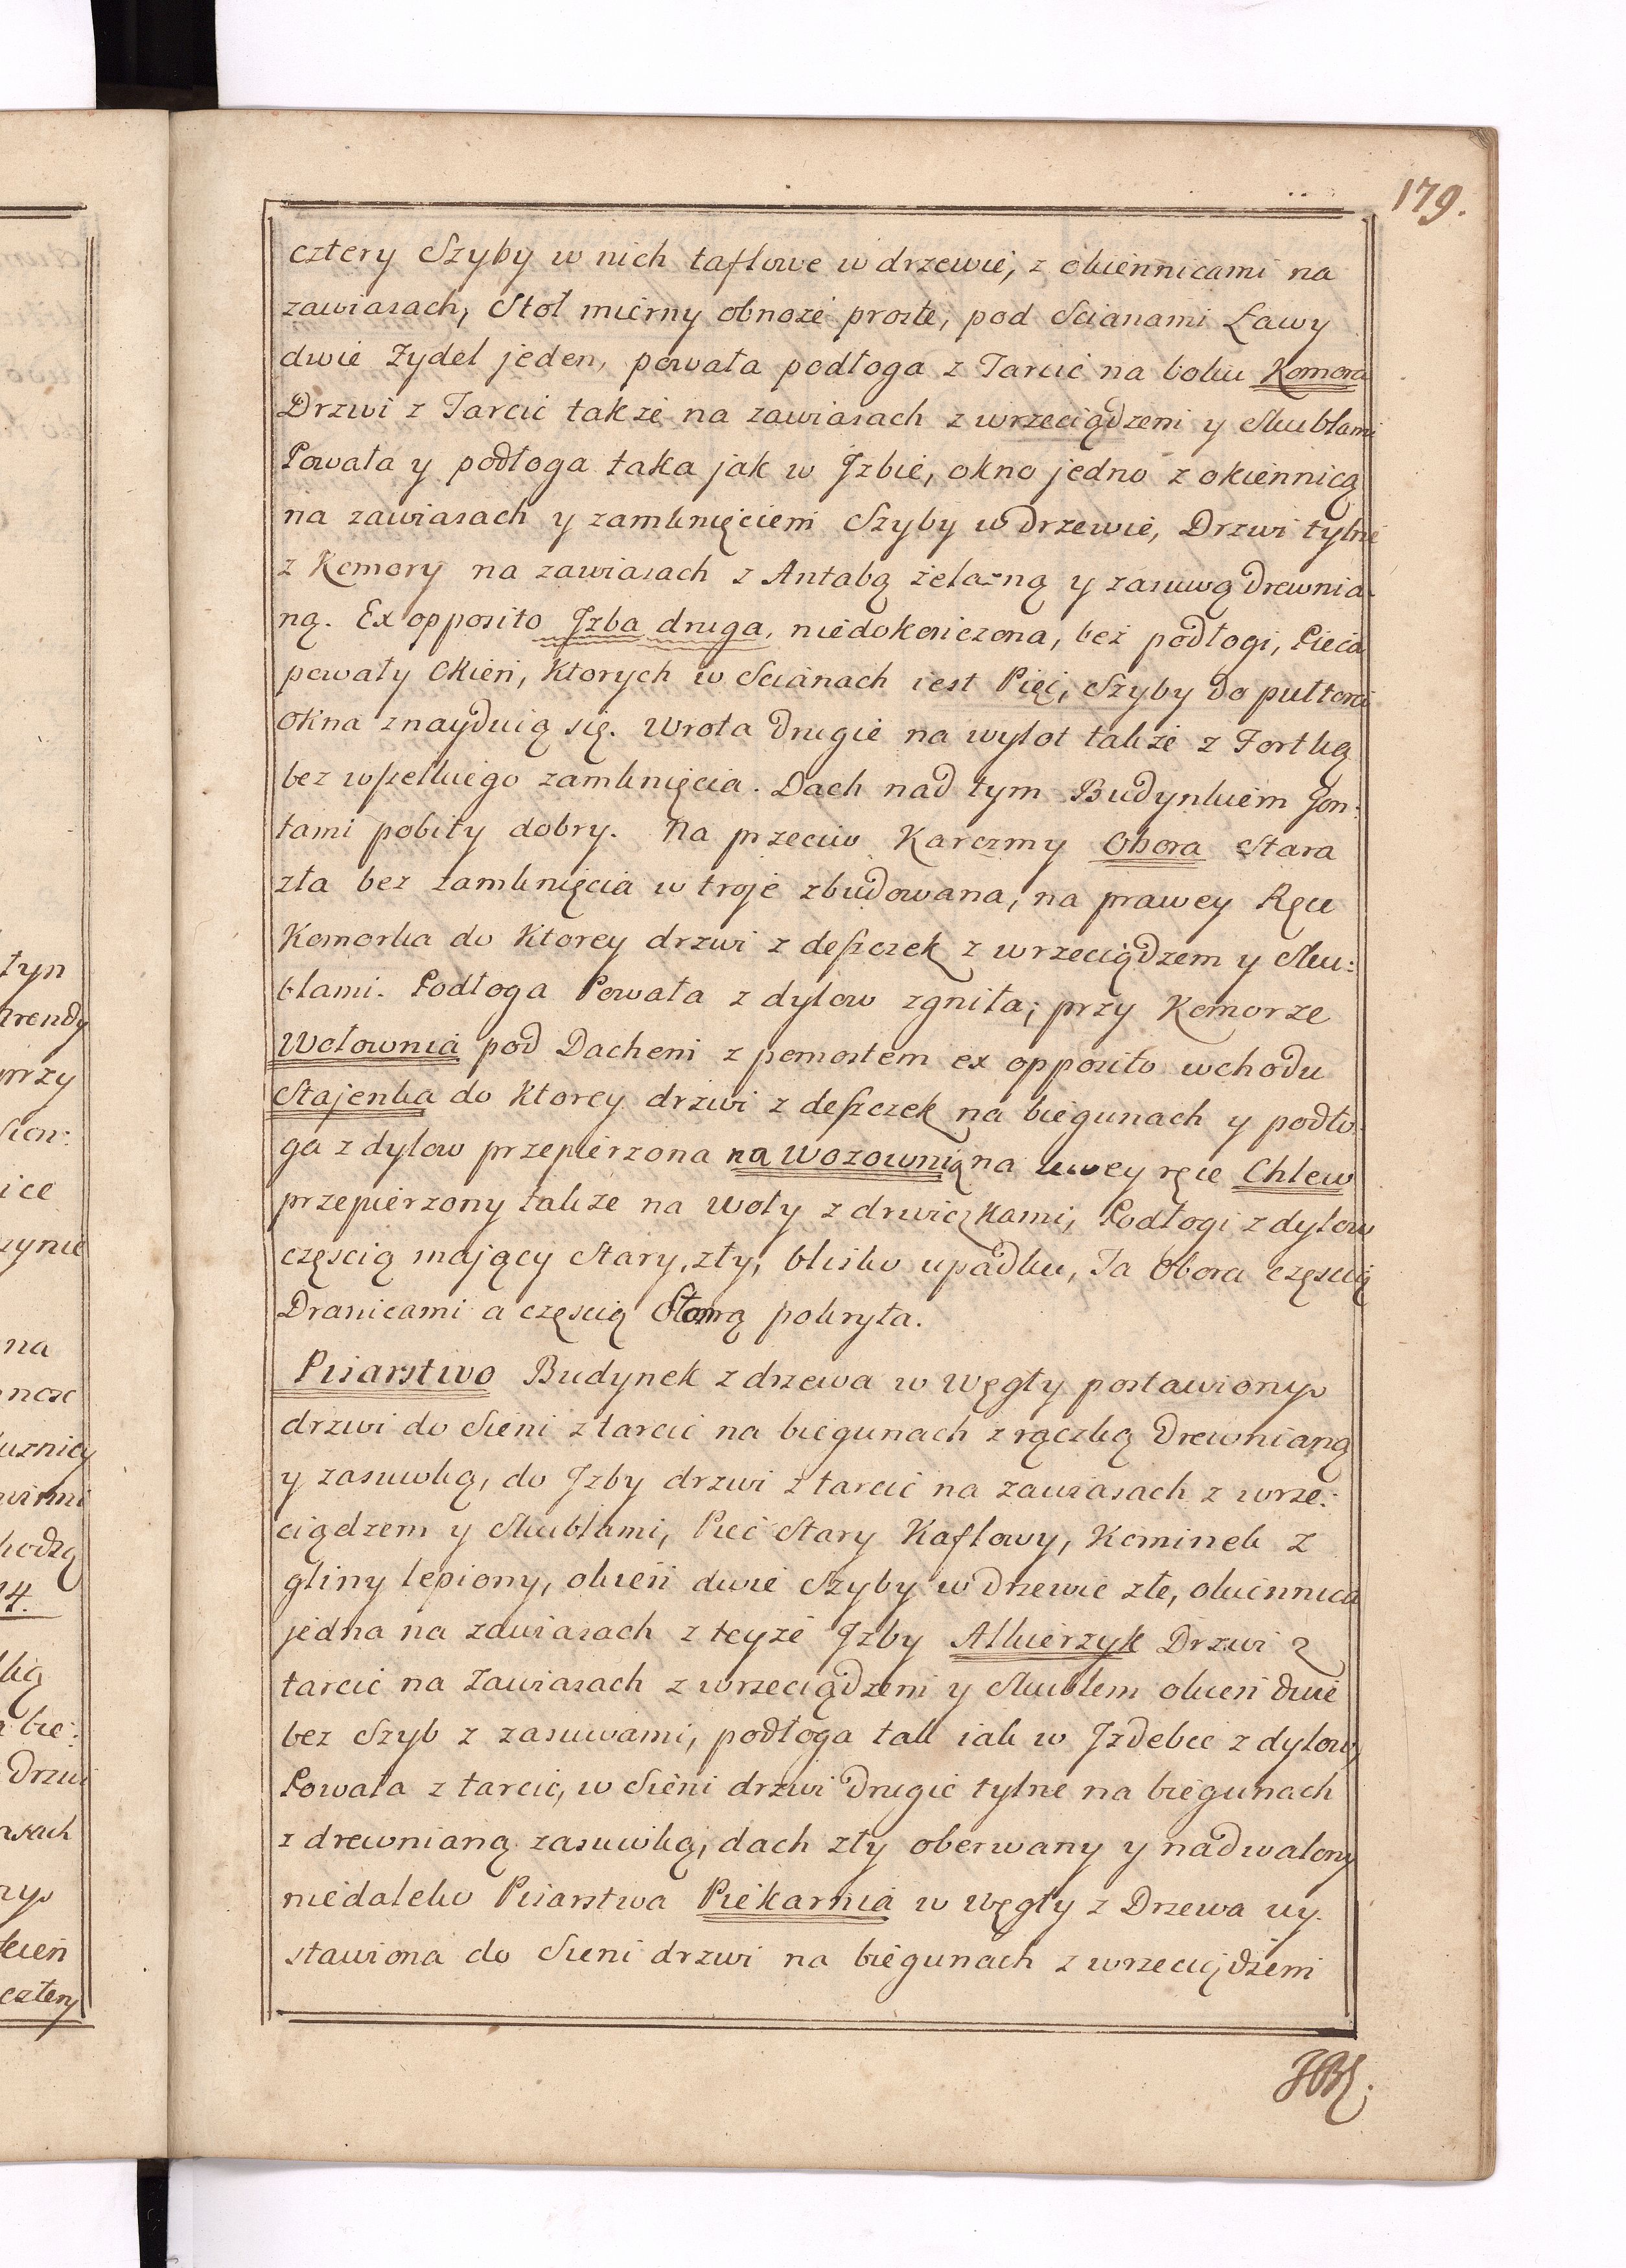 179.
cztery Szyby w nich taflowe w drzewie, z okiennicami na
zawiasach, Stoł mierny obnoże proste, pod Scianami Ławy
dwie Zydel jeden, powała podłoga z Tarcic na boku Komora
Drzwi z Tarcic także na zawiasach z wrzeciądzem y Skublami
Powała y podłoga taka jak w Jzbie, okno jedno z okiennicą
na zawiasach y zamknięciem Szyby w Drzewie, Drzwi tylne
z Komory na zawiasach z Antabą żelazną y zasuwą Drewnia-
ną. Ex opposito Jzba druga, niedokończona, bez podłogi, Pieca
powały Okien, Ktorych w Scianach iest Pięć, Szyby do pułtora
Okna znayduią się. Wrota Drugie na wylot także z Fortką
bez wszelkiego zamknięcia. Dach nad tym Budynkiem Gon:
tami pobity dobry. Na przeciw Karczmy Obora Stara
zła bez zamknięcia w troje zbudowana, na prawey Ręce
Komorka do Ktorey drzwi z deszczek z wrzeciądzem y Sku:
blami. Podłoga Powała z dylow zgniła; przy Komorze
Wołownia pod Dachem z pomostem ex opposito wchodu
Stajenka do Ktorey drzwi z deszczek na biegunach y podło-
ga z dylow przepierzona na Wozownią na lewey ręce Chlew
przepierzony także na Woły z drwiczkami, Podłogi z dylow
częscią mający Stary, zły, blisko upadku, Ta Obora częscią
Dranicami a częscią Słomą pokryta.
Pisarstwo Budynek z drzewa w Węgły postawiony
drzwi do Sieni z tarcic na biegunach z rączką Drewnianą
y zasuwką, do Jzby drzwi z tarcic na zawiasach z wrze:
ciądzem y Skublami, Piec Stary Kaflowy, Kominek z
gliny lepiony, okien dwie Szyby w Drzewie złe, okiennica
jedna na zawiasach z teyże Jzby Alkierzyk Drzwi z
tarcic na Zawiasach z wrzeciądzem y Skublem okien dwie
bez Szyb z zasuwami, podłoga tak iak w Jzdebce z dylow,
Powała z tarcic, w Sieni drzwi Drugie tylne na biegunach
z drewnianą zasuwką, dach zły oberwany y nadwalony
niedaleko Pisarstwa Piekarnia w Węgły z Drzewa wy-
stawiona do Sieni drzwi na biegunach z wrzeciądzem